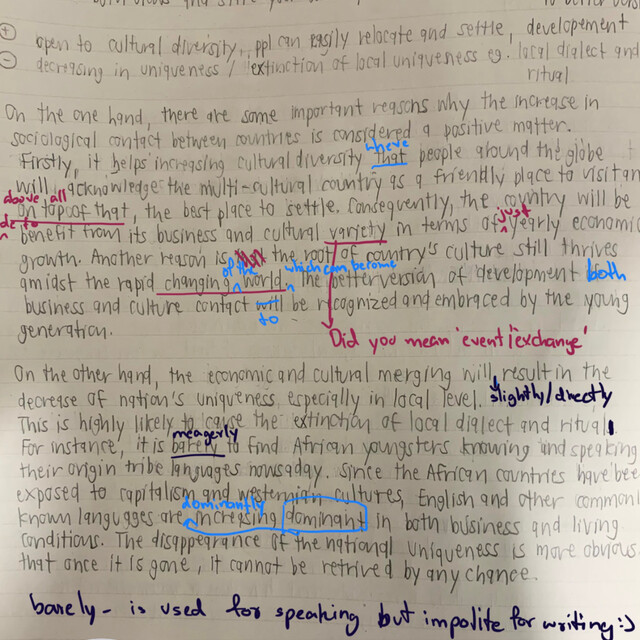 both views and
⊕ open to cultural diversity, ppl can easily relocate and settle, developement
⊖ decreasing in uniqueness / extinction of local uniqueness eg. local dialect and
ritual
On the one hand, there are some important reasons why the increase in
sociological contact between countries is considered a positive matter.
where
Firstly, it helps increasing cultural diversity that people around the globe
will acknowledge the multi-cultural country as a friendly place to visit an
above all
on top of that, the best place to settle. Consequently, the country will be
just
benefit from its business and cultural variety in terms of yearly economic
growth. Another reason is the root of country's culture still thrives
of the which can become
amidst the rapid changing world the better version of development both
business and culture contact will be recognized and embraced by the young
to
generation.
Did you mean 'event/exchange'
On the other hand, the economic and cultural merging will result in the
decrease of nation's uniqueness especially in local level. slightly/directly
This is highly likely to cause the extinction of local dialect and ritual.
meagerly
For instance, it is barely to find African youngsters knowing and speaking
their origin tribe languages nowsaday. Since the African countries have bee
exposed to capitalism and westernian cultures, English and other common
dominantly
known languages are increasing dominant in both business and living
conditions. The disappearance of the national uniqueness is more obvious
that once it is gone, it cannot be retrived by any chance.
barely - is used for speaking but impolite for writing :)